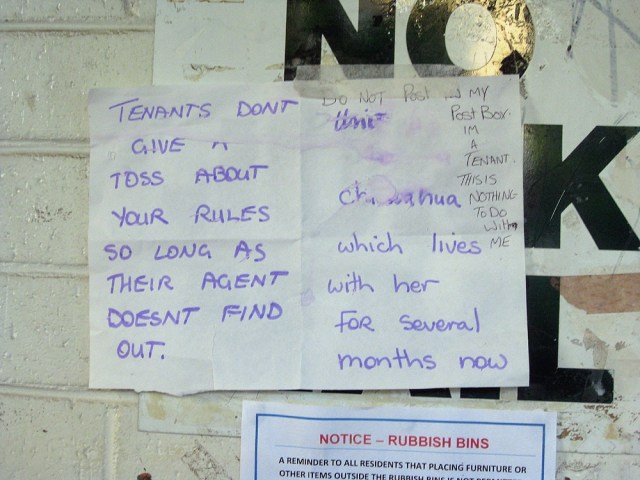 NO
K
TENANTS DONT
GIVE A
TOSS ABOUT
YOUR RULES
SO LONG AS
THEIR AGENT
DOESNT FIND
OUT.
DO NOT POST IN MY
POST BOX.
IM
A
TENANT.
THIS IS
NOTHING
TO DO
WITH
ME
Unit
chihuahua
which lives
with her
for several
months now
NOTICE – RUBBISH BINS
A REMINDER TO ALL RESIDENTS THAT PLACING FURNITURE OR
OTHER ITEMS OUTSIDE THE RUBBISH BINS IS NOT